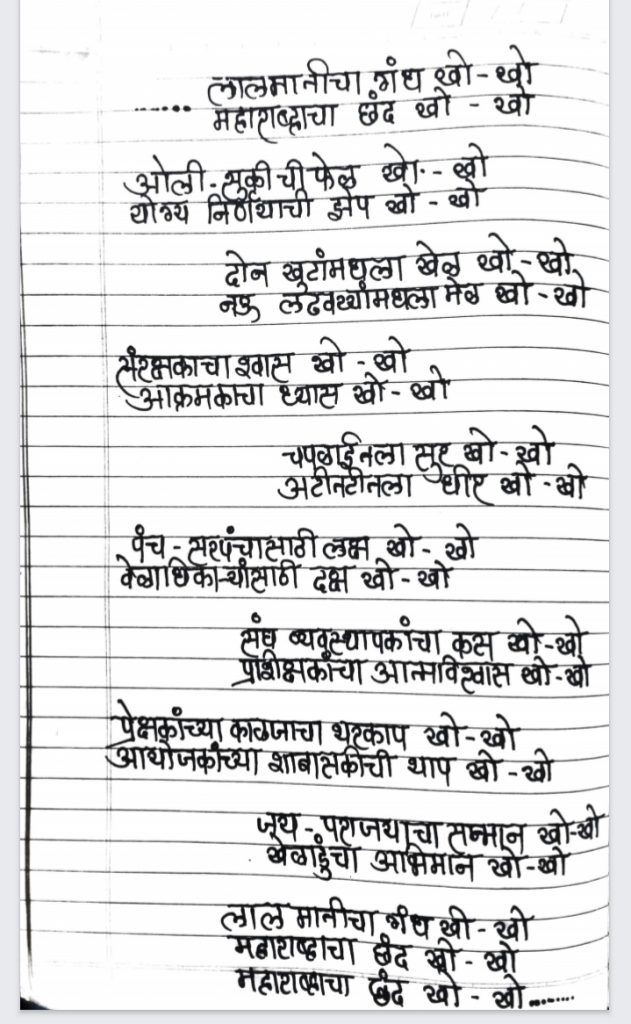 लालमातीचा गंध खो - खो
...... महाराष्ट्राचा छंद खो - खो
ओली - सुकीची फेळ खो - खो
योग्य निर्णयाची झेप खो - खो
दोन खुटांमधला खेळ खो - खो
नऊ लढवय्यांमधला मेळ खो - खो
संरक्षकाचा श्वास खो - खो
आक्रमकाचा ध्यास खो - खो
चपळाईतला सुर खो - खो
अटीतटीतला धीर खो - खो
पंच - सरपंचासाठी लक्ष खो - खो
वेळाधिकाऱ्यांसाठी दक्ष खो - खो
संघ व्यवस्थापकांचा कस खो - खो
प्राशीक्षकांचा आत्मविश्वास खो - खो
प्रेक्षकांच्या काळजाचा थरकाप खो - खो
आयोजकांच्या शाबासकीची थाप खो - खो
जय - पराजयाचा सन्मान खो - खो
खेळाडुंचा अभिमान खो - खो
लाल मातीचा गंध खो - खो
महाराष्ट्राचा छंद खो - खो
महाराष्ट्राचा छंद खो - खो.......